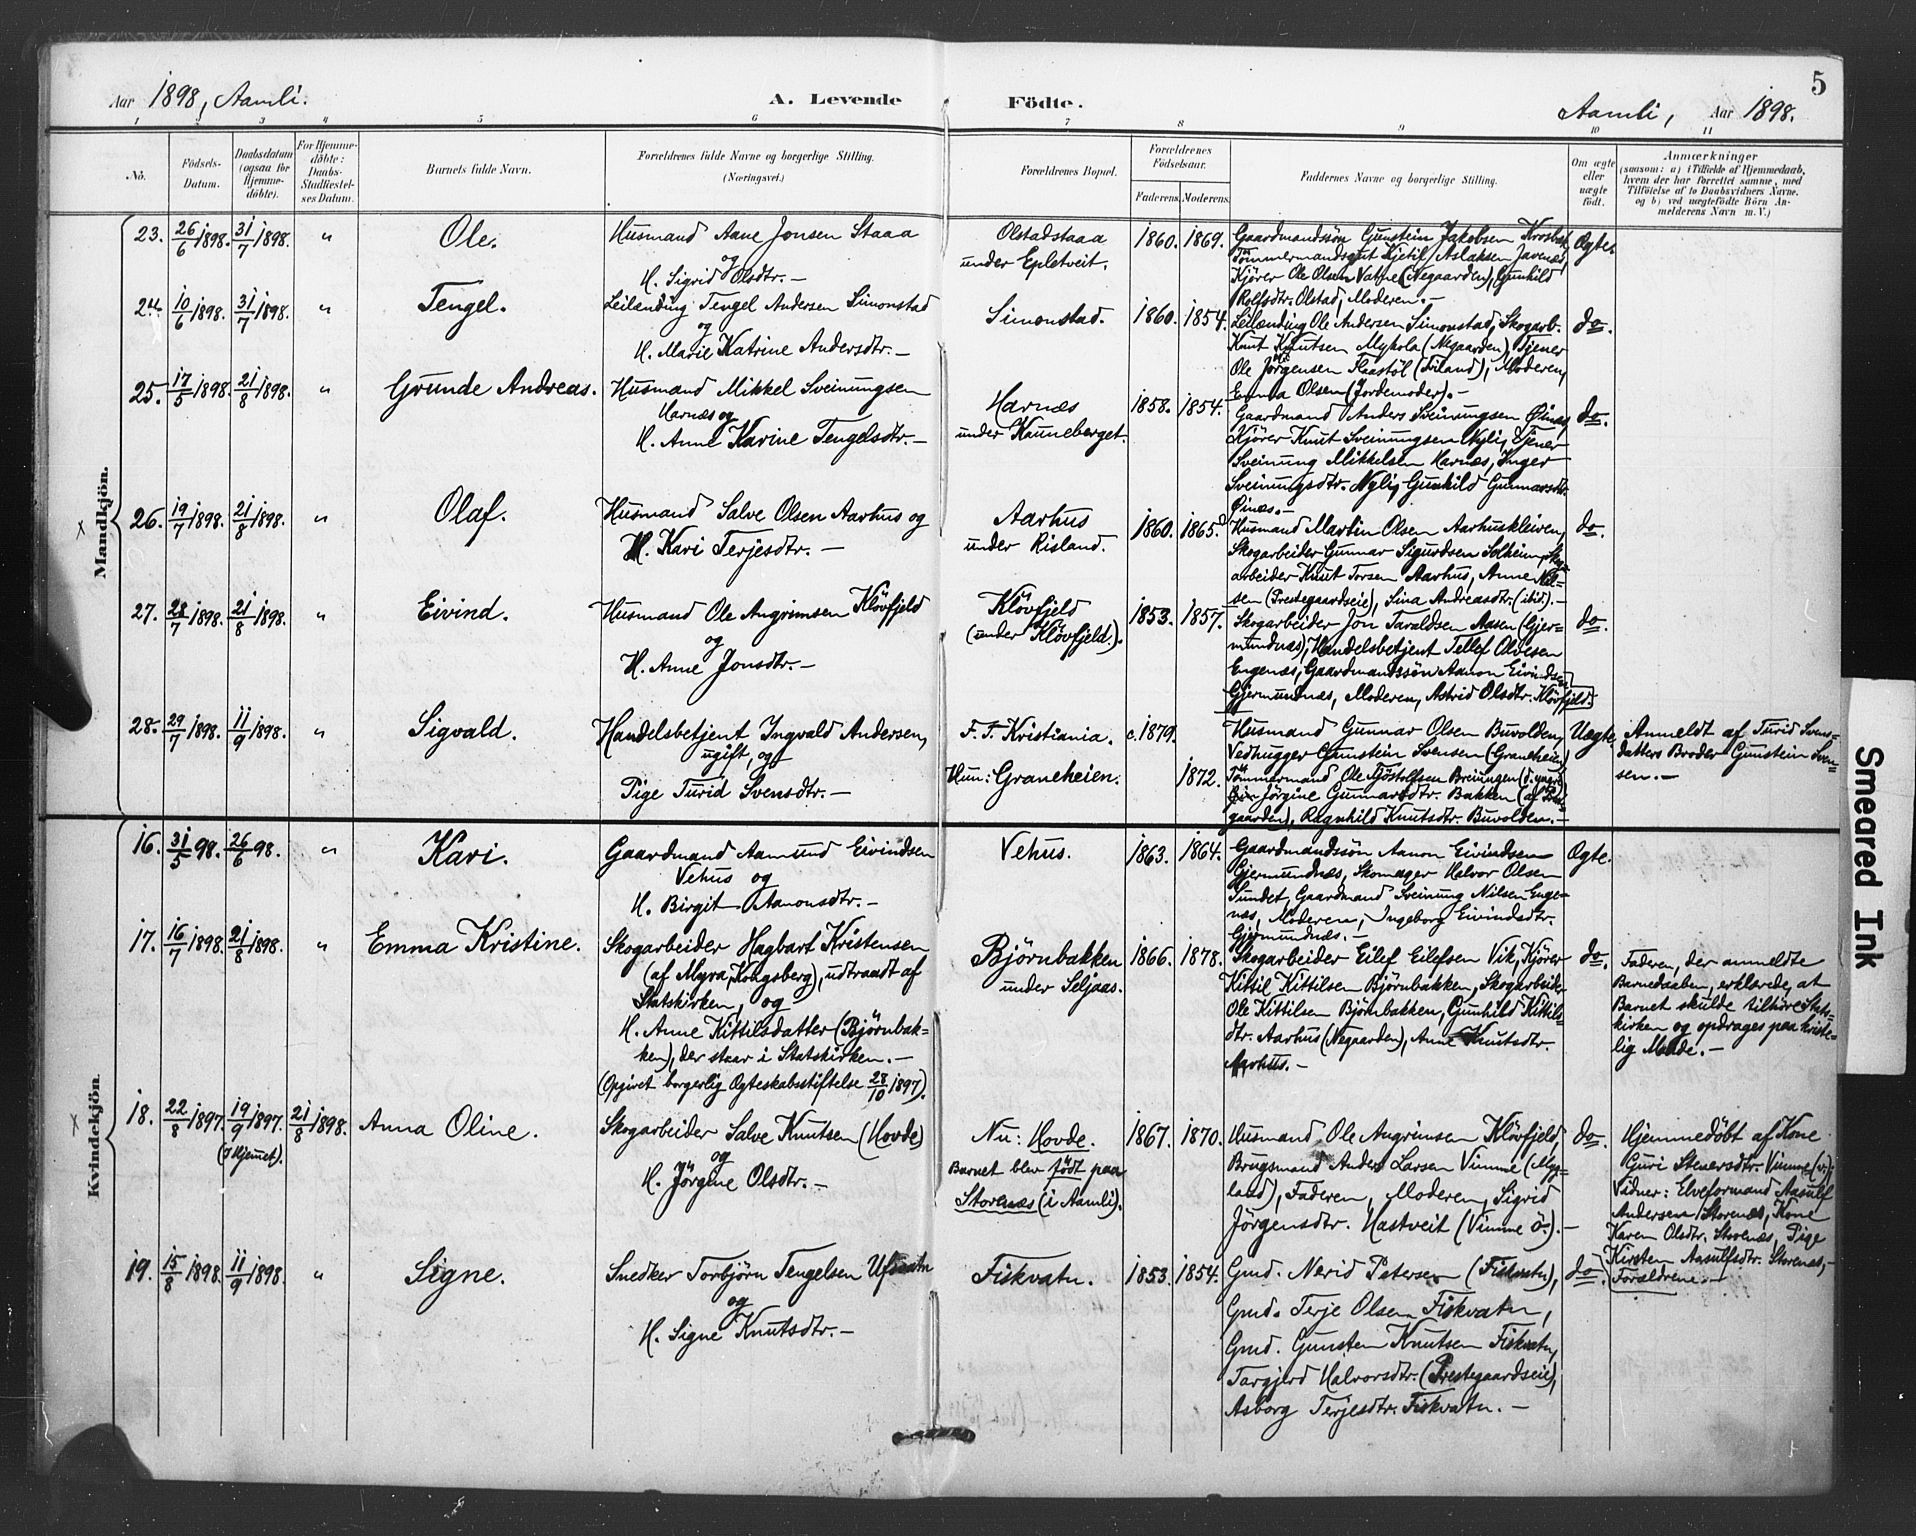 5
Aar 1898, Aamli.
A. Levende Födte.
Aamli, Aar 1898.
1 2 3 4 5 6 7 8 9 10 11
No.
Födsels-
Datum.
Daabsdatum
(ogsaa for
Hjemme-
döbte).
For Hjemme-
döbte:
Daabs-
Stadfæstel-
ses Datum.
Barnets fulde Navn.
Forældrenes fulde Navne og borgerlige Stilling.
(Næringsvei.)
Forældrenes Bopæl.
Forældrenes
Födselsaar.
Faderens. Moderens.
Faddernes Navne og borgerlige Stilling.
Om ægte
eller
uægte
födt.
Anmærkninger
(saasom: a) i Tilfælde af Hjemmedaab,
hvem der har forrettet samme, med
Tilföielse af to Daabsvidners Navne,
og b) ved uægtefödte Börn An-
melderens Navn m. V.)
Mandkjön.
23. 26/6 1898. 31/7 1898. " Ole.
Husmand Aane Jonsen Staaa
og
H. Sigrid Olsdtr. —
Olstadstaaa
under Epletveit.
1860. 1869.
Gaardmandssön Gunstein Jakobsen
Tömmermandsgut Kjetil Aslaksen Javenes,
Kjörer Ole Olsen Vatne (Negaarden), Gunhild
Rolfsdtr. Olstad, Moderen. —
Ægte.
24. 10/6 1898. 31/7 1898. " Tengel.
Leilending Tengel Andersen Simonstad
og
H. Marie Katrine Andersdtr. —
Simonstad.
1860. 1854.
Leilænding Ole Andersen Simonstad, Skogarb.
Knut Knutsen Myhola (Negaarden), Tjener
Ole Jörgensen (Friland), Moderen,
Emma Olsen (Jordemoder). —
do.
25. 17/5 1898. 21/8 1898. " Grunde Andreas.
Husmand Mikkel Sveinungsen
Harnæs og
H. Anne Karine Tengelsdtr. —
Harnæs
under Hauneberget.
1858. 1854.
Gaardmand Anders Sveinungsen Öinæs,
Kjörer Knut Sveinungsen Nylig, Tjener
Sveinung Mikkelsen Harnæs, Inger
Sveinungsdtr. Nylig, Gunhild Gunnarsdtr.
Öinæs. —
do.
26. 19/7 1898. 21/8 1898. " Olaf.
Husmand Salve Olsen Aarhus og
H. Kari Terjesdtr. —
Aarhus
under Risland.
1860. 1865.
Husmand Martin Olsen Aarhuskleiven,
Skogarbeider Gunnar Sigurdsen Solheim, Skog-
arbeider Knut Torsen Aarhus, Anne Nil-
sen (Prestegaardseie), Sina Andreasdtr. (ibid). —
do.
27. 28/7 1898. 21/8 1898. " Eivind.
Husmand Ole Angrimsen Klövfjeld
og
H. Anne Jonsdtr. —
Klövfjeld
(under Klövfjeld.).
1853. 1857.
Skogarbeider Jon Taraldsen Aasen (Gjer-
mundnæs), Handelsbetjent Tellef Olsen
Engenæs, Gaardmandssön Aanon Eivindsen
Gjermundnæs, Moderen, Astrid Olsdtr. Klövfjeld.
do.
28. 29/7 1898. 11/9 1898. " Sigvald.
Handelsbetjent Ingvald Andersen,
ugift, og
Pige Turid Svensdtr. —
F. T. Kristiania.
Hun: Graneheien.
c. 1879. 1872.
Husmand Gunnar Olsen Buvolden,
Vedhugger Gunstein Svensen (Graneheien)
Tömmermand Ole Tjöstolfsen Breiungen (d. yngre)
Jörgine Gunnarsdtr. Bakken
gaarden), Ragnhild Knutsdtr. Buvolden. —
Uægte.
Anmeldt af Turid Svens-
datters Broder Gunstein Sven-
sen. —
Kvindekjön.
16. 31/5 98. 26/6 98. " Kari.
Gaardmand Aamund Eivindsen
Vehus og
H. Birgit Aanonsdtr. —
Vehus.
1863. 1864.
Gaardmandssön Aanon Eivindsen
Gjermundnæs, Skomager Halvor Olsen
Sundet, Gaardmand Sveinung Nilsen Enge-
næs, Moderen, Ingeborg Eivindsdtr.
Gjermundnæs. —
Ægte.
17. 16/7 1898. 21/8 1898. " Emma Kristine.
Skogarbeider Hagbart Kristensen
(af Myra, Kongsberg), udtraadt af
Statskirken, og
H. Anne Kittilsdatter (Björnbak-
ken), der staar i Statskirken. —
(Opgivet borgerlig Ægteskabsstiftelse 28/10 1897).
Björnbakken
under Seljaas.
1866. 1878.
Skogarbeider Eilef Eilefsen Vik, Kjörer
Kittil Kittilsen Björnbakken, Skogarbeider
Ole Kittilsen Björnbakken, Gunhild Kittils-
dtr. Aarhus (Negaarden), Anne Knutsdtr.
Aarhus. —
do.
Faderen, der anmeldte
Barnedaaben, erklærede, at
Barnet skulde tilhöre Stats-
kirken og opdrages paa kriste-
lig Maade. —
18. 22/8 1897. 19/9 1897. (I Hjemmet). 21/8 1898. Anna Oline.
Skogarbeider Salve Knutsen (Hovde)
og
H. Jörgine Olsdtr. —
Nu: Hovde.
Barnet blev födt paa
Storenæs (i Aamli).
1867. 1870.
Husmand Ole Angrimsen Klövfjeld,
Brugsmand Anders Larsen Vimme (Myg-
land), Faderen, Moderen, Sigrid
Jörgensdtr. Hastveit (Vimme ö.). —
do.
Hjemmedöbt af Kone
Guri Stenersdtr. Vimme (v.);
Vidner: Elveformand Aasulf
Andersen Storenæs, Kone
Karen Olsdtr. Storenæs, Pige
Kirsten Aasulfsdtr. Storenæs, —
Forældrene. —
19. 15/8 1898. 11/9 1898. " Signe.
Snedker Torbjörn Tengelsen Ufsvatn
og
H. Signe Knutsdtr. —
Fiskvatn.
1853. 1854.
Gmd. Nerid Petersen (Fiskvatn),
Gmd. Terje Olsen Fiskvatn,
Gmd. Gunsten Knutsen Fiskvatn,
Targjerd Halvorsdtr. (Prestegaardseie),
Asborg Terjesdtr. Fiskvatn. —
do.
Smeared Ink